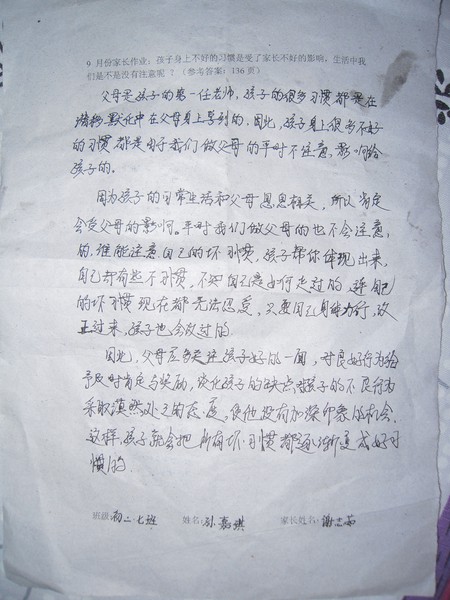 9 月份家长作业:孩子身上不好的习惯是受了家长不好的影响,生活中我
们是不是没有注意呢?(参考答案:136 页)
父母是孩子的第一任老师,孩子的很多习惯都是在
潜移默化中在父母身上学到的,因此,孩子身上很多不好
的习惯都是由于我们做父母的平时不注意,影响给
孩子的。
因为孩子的日常生活和父母息息相关,所以肯定
会受父母的影响。平时我们做父母的也不会注意
的,谁能注意自己的坏习惯,孩子帮你体现出来,
自己却有些不习惯,不知自己是如何走过的 连自己
的坏习惯现在都无法忍受,只要自己身体力行,改
正过来,孩子也会改过的
因此,父母应多关注孩子好的一面,对良好行为给
予及时肯定与奖励,淡化孩子的缺点,对孩子的不良行为
采取漠然处之的态度,使他没有加深印象的机会,
这样,孩子就会把所有坏习惯都逐渐变成好习
惯的。
班级:初二·七班 姓名:孙嘉琪 家长姓名:谢志茹